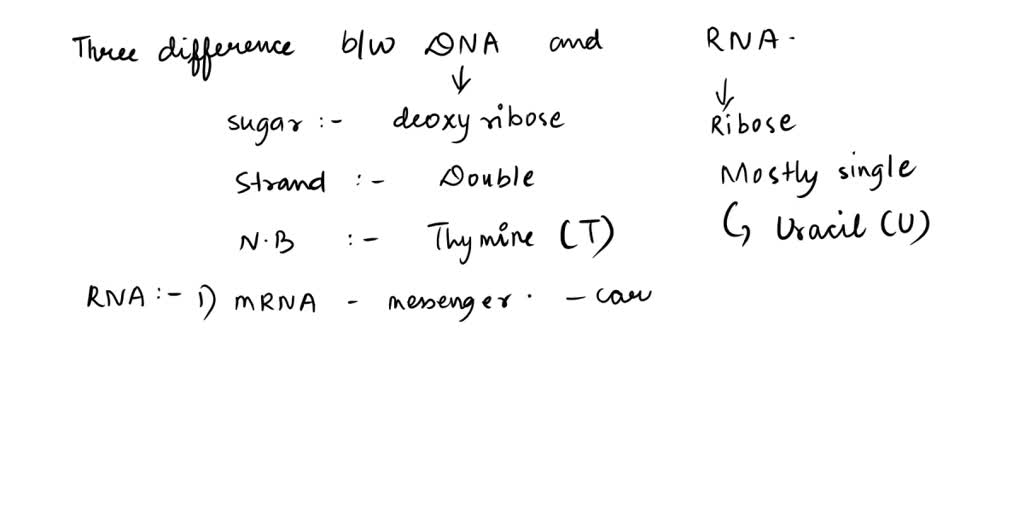 Three difference b/w DNA and RNA.
sugar :- deoxy ribose Ribose
Strand :- Double Mostly single
N.B :- Thymine (T) Uracil (U)
RNA :- 1) mRNA - messenger. - car